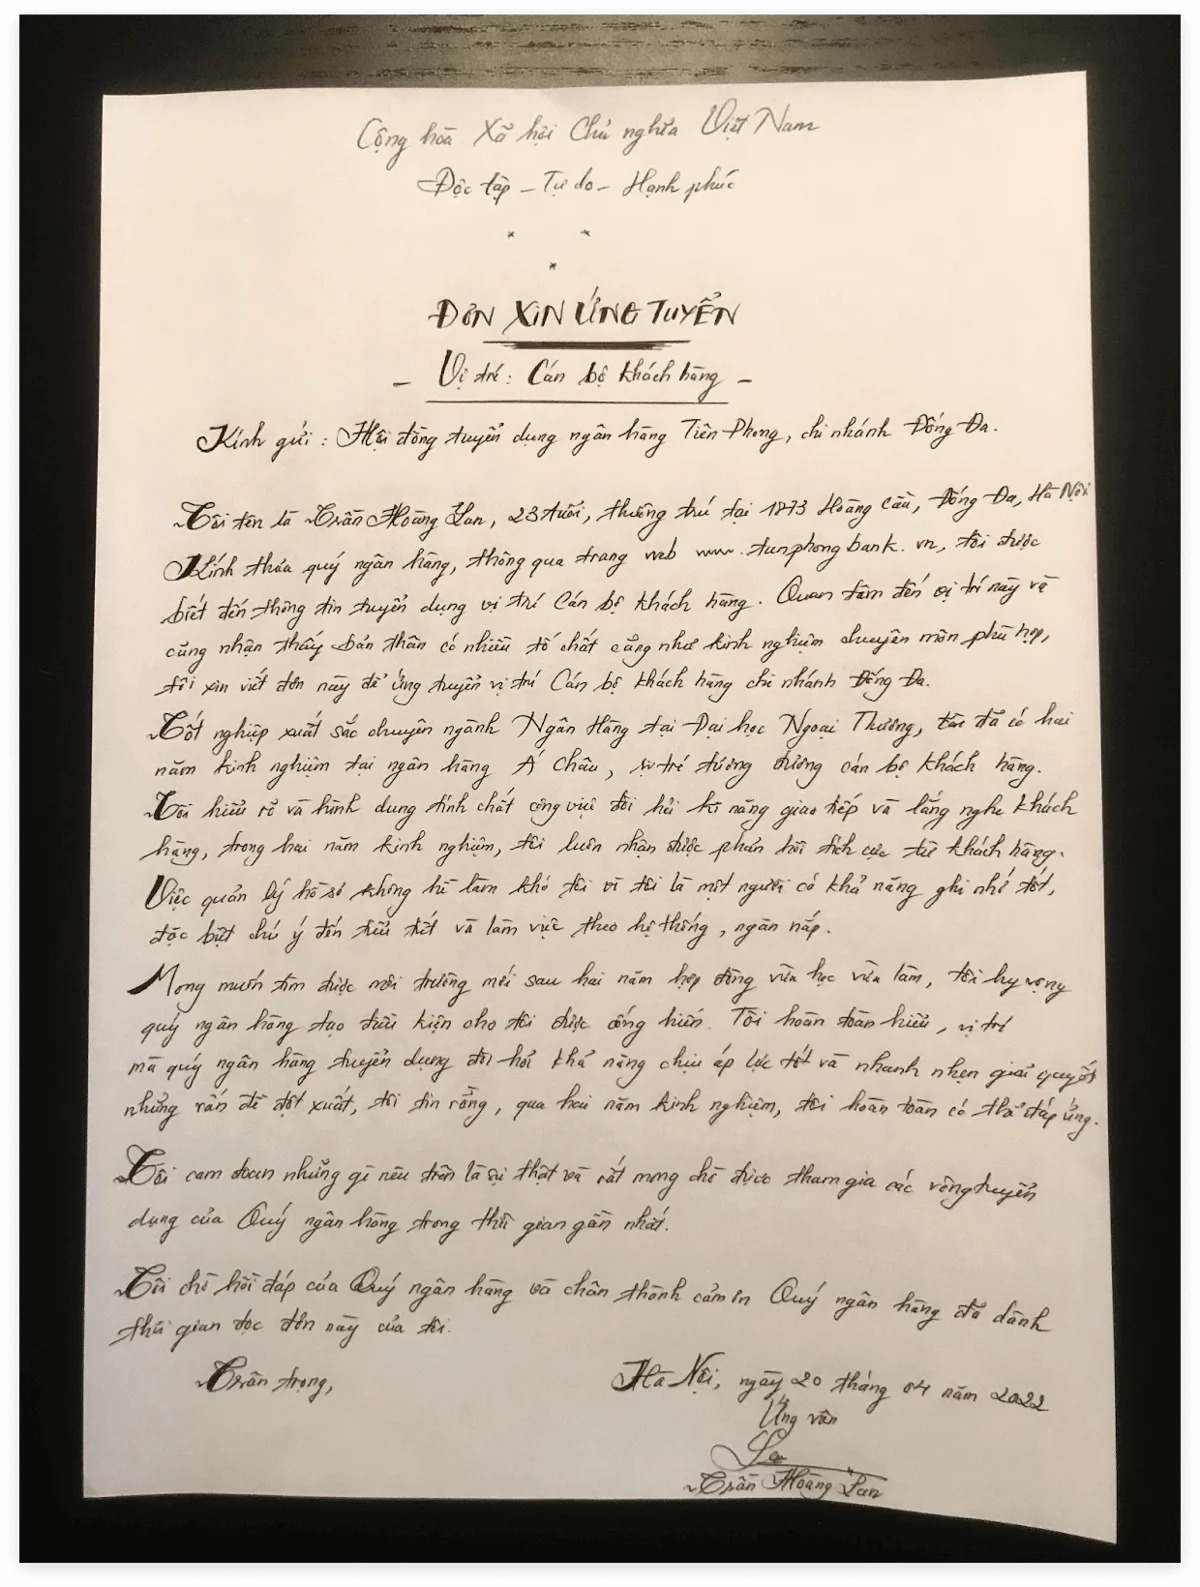 Cộng hòa Xã hội Chủ nghĩa Việt Nam
Độc lập - Tự do - Hạnh phúc
* *
*
ĐƠN XIN ỨNG TUYỂN
- Vị trí: Cán bộ khách hàng -
Kính gửi: Hội đồng tuyển dụng ngân hàng Tiên Phong, chi nhánh Đống Đa.
Tôi tên là Trần Hoàng Lan, 23 tuổi, thường trú tại 1873 Hoàng Cầu, Đống Đa, Hà Nội
Kính thưa quý ngân hàng, thông qua trang web www.tienphongbank.vn, tôi được
biết đến thông tin tuyển dụng vị trí Cán bộ khách hàng. Quan tâm đến vị trí này và
cũng nhận thấy bản thân có nhiều tố chất cũng như kinh nghiệm chuyên môn phù hợp,
tôi xin viết đơn này để ứng tuyển vị trí Cán bộ khách hàng chi nhánh Đống Đa.
Tốt nghiệp xuất sắc chuyên ngành Ngân Hàng tại Đại học Ngoại Thương, tôi đã có hai
năm kinh nghiệm tại ngân hàng Á Châu, vị trí tương đương cán bộ khách hàng.
Tôi hiểu rõ và hình dung tính chất công việc đòi hỏi kĩ năng giao tiếp và lắng nghe khách
hàng, trong hai năm kinh nghiệm, tôi luôn nhận được phản hồi tích cực từ khách hàng.
Việc quản lý hồ sơ không hề làm khó tôi vì tôi là một người có khả năng ghi nhớ tốt,
đặc biệt chú ý đến tiểu tiết và làm việc theo hệ thống, ngăn nắp.
Mong muốn tìm được môi trường mới sau hai năm hợp đồng vừa học vừa làm, tôi hy vọng
quý ngân hàng tạo điều kiện cho tôi được cống hiến. Tôi hoàn toàn hiểu, vị trí
mà quý ngân hàng tuyển dụng đòi hỏi khả năng chịu áp lực tốt và nhanh nhẹn giải quyết
những vấn đề đột xuất, tôi tin rằng, qua hai năm kinh nghiệm, tôi hoàn toàn có thể đáp ứng.
Tôi cam đoan những gì nêu trên là sự thật và rất mong chờ được tham gia các vòng tuyển
dụng của Quý ngân hàng trong thời gian gần nhất.
Tôi chờ hồi đáp của Quý ngân hàng và chân thành cảm ơn Quý ngân hàng đã dành
thời gian đọc đơn này của tôi.
Trân trọng,
Hà Nội, ngày 20 tháng 04 năm 2022
Ứng viên
Lan
Trần Hoàng Lan